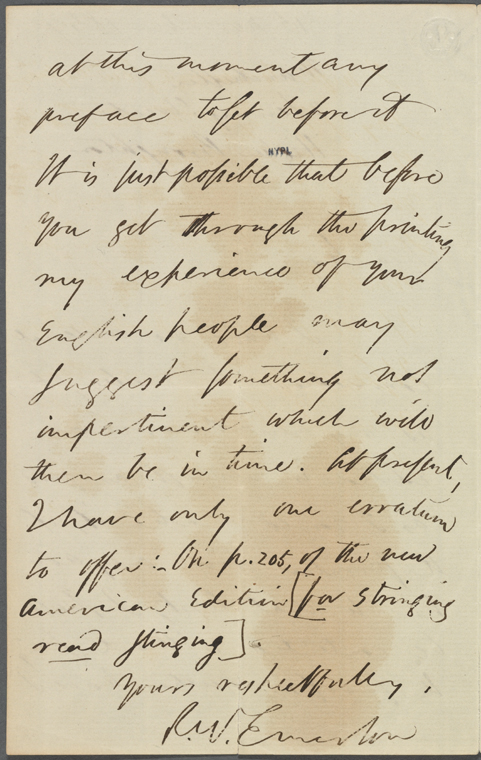 at this moment any
preface to set before it
NYPL
It is just possible that before
you get through the printing
my experience of your
English people may
suggest something not
impertinent which will
then be in time. At present,
I have only one erratum
to offer:- On p. 205, of the new
American Edition [for stringing
read stinging].
Yours respectfully,
R.W. Emerson